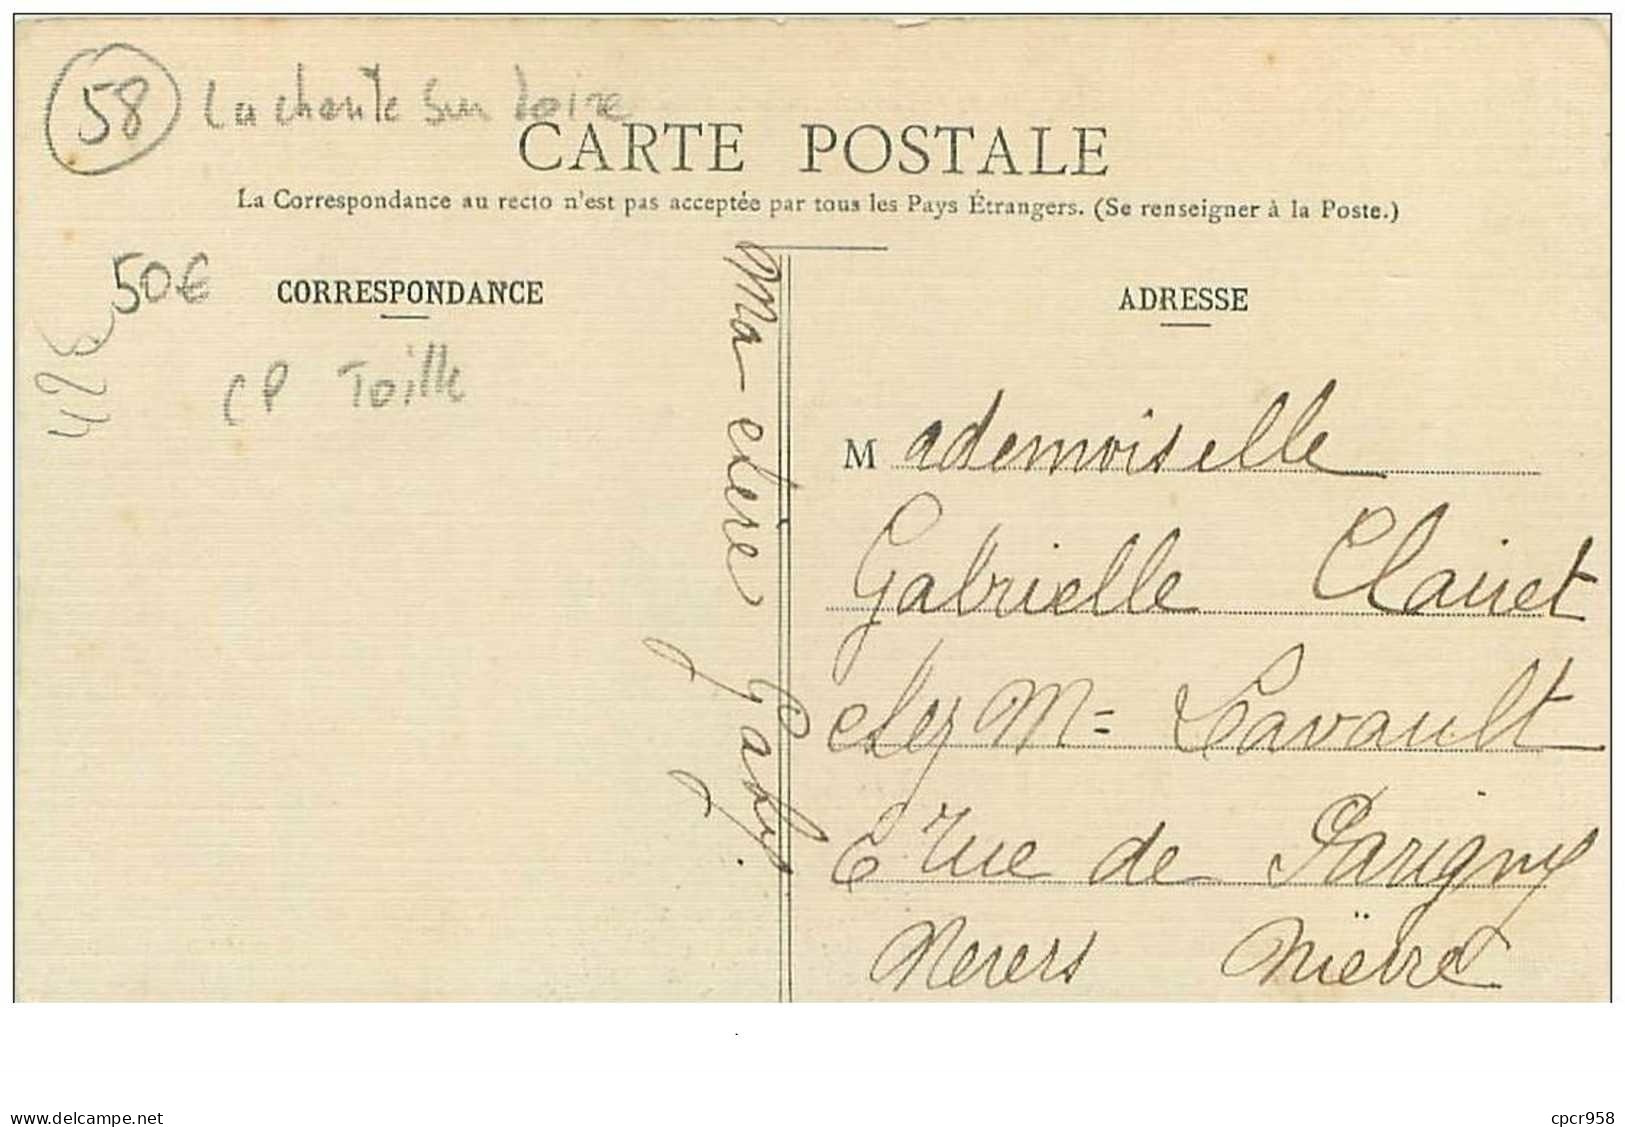 58 La charité sur Loire
CARTE POSTALE
La Correspondance au recto n'est pas acceptée par tous les Pays Étrangers. (Se renseigner à la Poste.)
50€
CORRESPONDANCE
ADRESSE
CP Toille
Ma chérie Gaby.
Mademoiselle
Gabrielle Clairet
chez Mme Lavault
6 rue de Parigny
Nevers Nièvre
www.delcampe.net
cpcr958